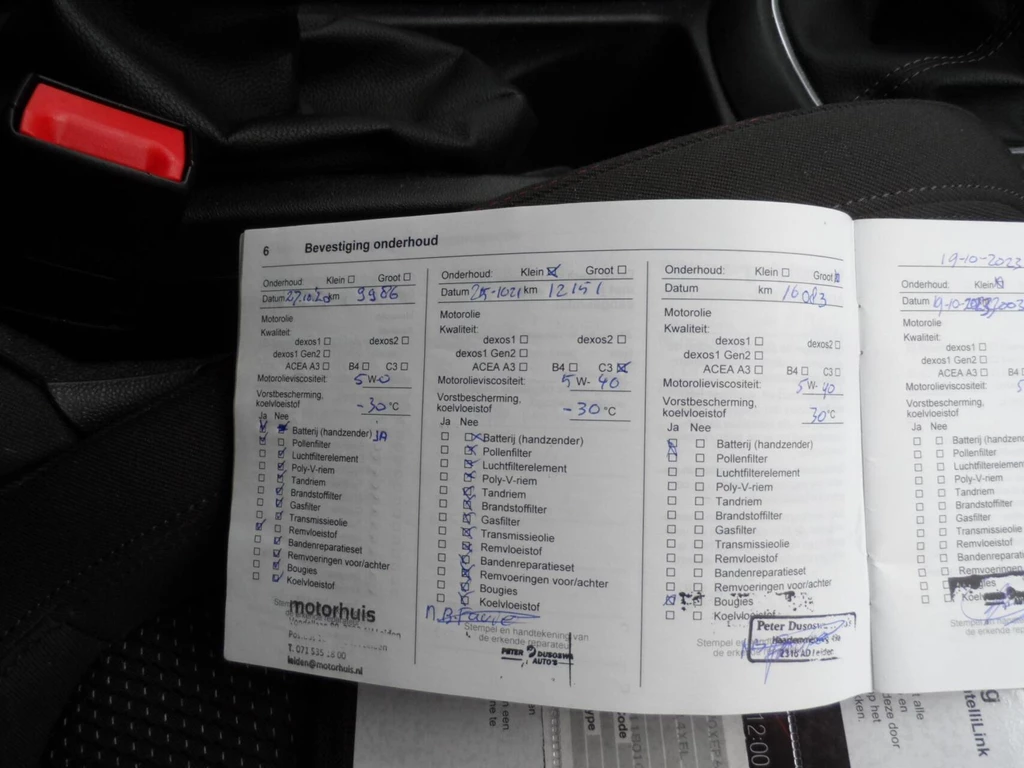 6 Bevestiging onderhoud
Onderhoud: Klein Groot
Datum 27.10.20 km 9986
Motorolie
Kwaliteit:
dexos1 dexos2
dexos1 Gen2
ACEA A3 B4 C3
Motorolieviscositeit: 5 W-0
Vorstbescherming,
koelvloeistof -30 °C
Ja Nee
Batterij (handzender) JA
Pollenfilter
Luchtfilterelement
Poly-V-riem
Tandriem
Brandstoffilter
Gasfilter
Transmissieolie
Remvloeistof
Bandenreparatieset
Remvoeringen voor/achter
Bougies
Koelvloeistof
motorhuis
T. 071 535 18 00
leiden@motorhuis.nl
Onderhoud: Klein Groot
Datum 25-1021 km 12151
Motorolie
Kwaliteit:
dexos1 dexos2
dexos1 Gen2
ACEA A3 B4 C3
Motorolieviscositeit: 5 W- 40
Vorstbescherming,
koelvloeistof -30 °C
Ja Nee
Batterij (handzender)
Pollenfilter
Luchtfilterelement
Poly-V-riem
Tandriem
Brandstoffilter
Gasfilter
Transmissieolie
Remvloeistof
Bandenreparatieset
Remvoeringen voor/achter
Bougies
Koelvloeistof
Stempel en handtekening van
de erkende reparateur
PETER DUSOSWA
AUTO'S
Onderhoud: Klein Groot
Datum km 16083
Motorolie
Kwaliteit:
dexos1 dexos2
dexos1 Gen2
ACEA A3 B4 C3
Motorolieviscositeit: 5 W- 40
Vorstbescherming,
koelvloeistof 30 °C
Ja Nee
Batterij (handzender)
Pollenfilter
Luchtfilterelement
Poly-V-riem
Tandriem
Brandstoffilter
Gasfilter
Transmissieolie
Remvloeistof
Bandenreparatieset
Remvoeringen voor/achter
Bougies
Koelvloeistof
Stempel
de erkende
Peter Dusoswa
2316 AD Leiden
19-10-2023
Onderhoud: Klein
Datum 19-10-2023
Motorolie
Kwaliteit:
dexos1
dexos1 Gen2
ACEA A3 B4
Motorolieviscositeit: 5
Vorstbescherming,
koelvloeistof
Ja Nee
Batterij (handzend
Pollenfilter
Luchtfilterelemen
Poly-V-riem
Tandriem
Brandstoffilter
Gasfilter
Transmissieolie
Remvloeistof
Bandenreparati
Remvoeringen
12:00
code
type
alle
deze door
op het
ken.
g
ntelliLink